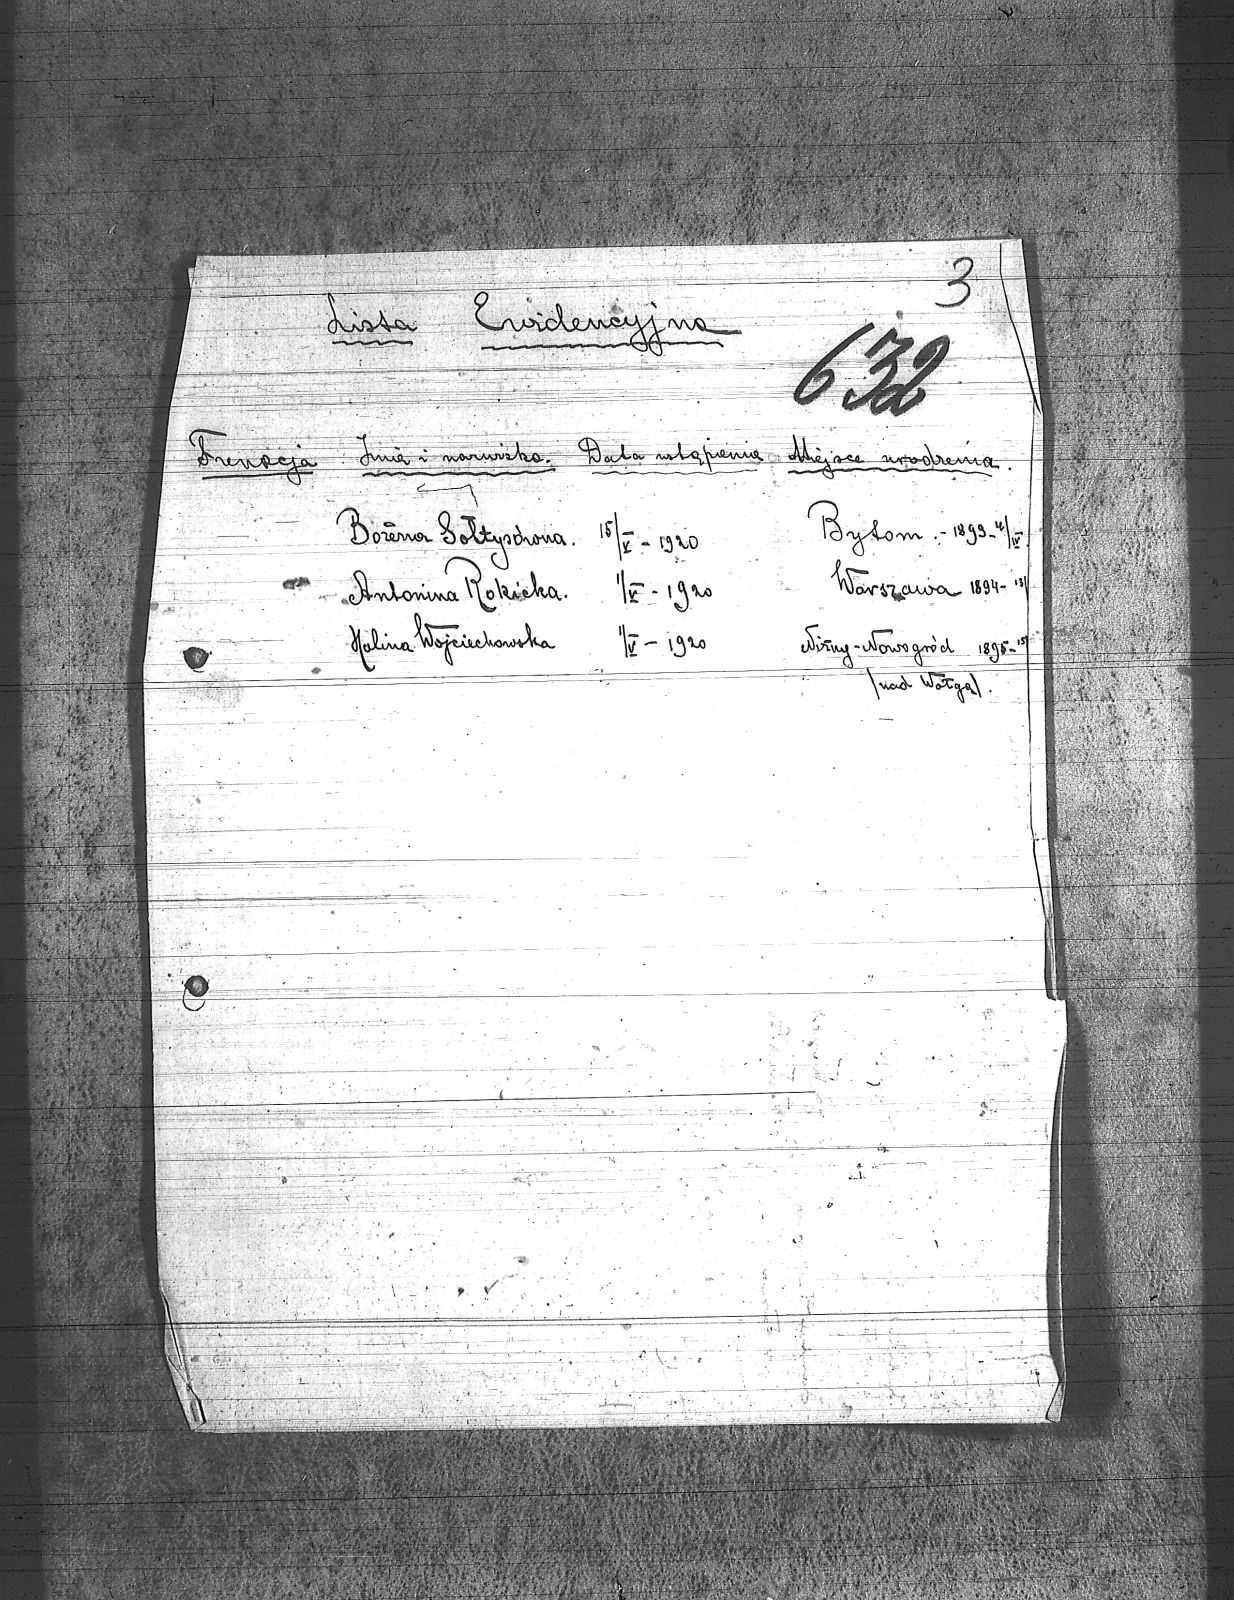 3
Lista Ewidencyjna
632
Imię i nazwisko. Data wstąpienia Miejsce urodzenia.
Bożena Sołtysówna. 15/V - 1920 Bytom. - 1899 - 4/IV.
Antonina Rokicka. 1/VI - 1920 Warszawa 1894 - 13/
Halina Wojciechowska 1/V - 1920 Niżny-Nowogród 1895 - 15/
/nad Wołgą/.